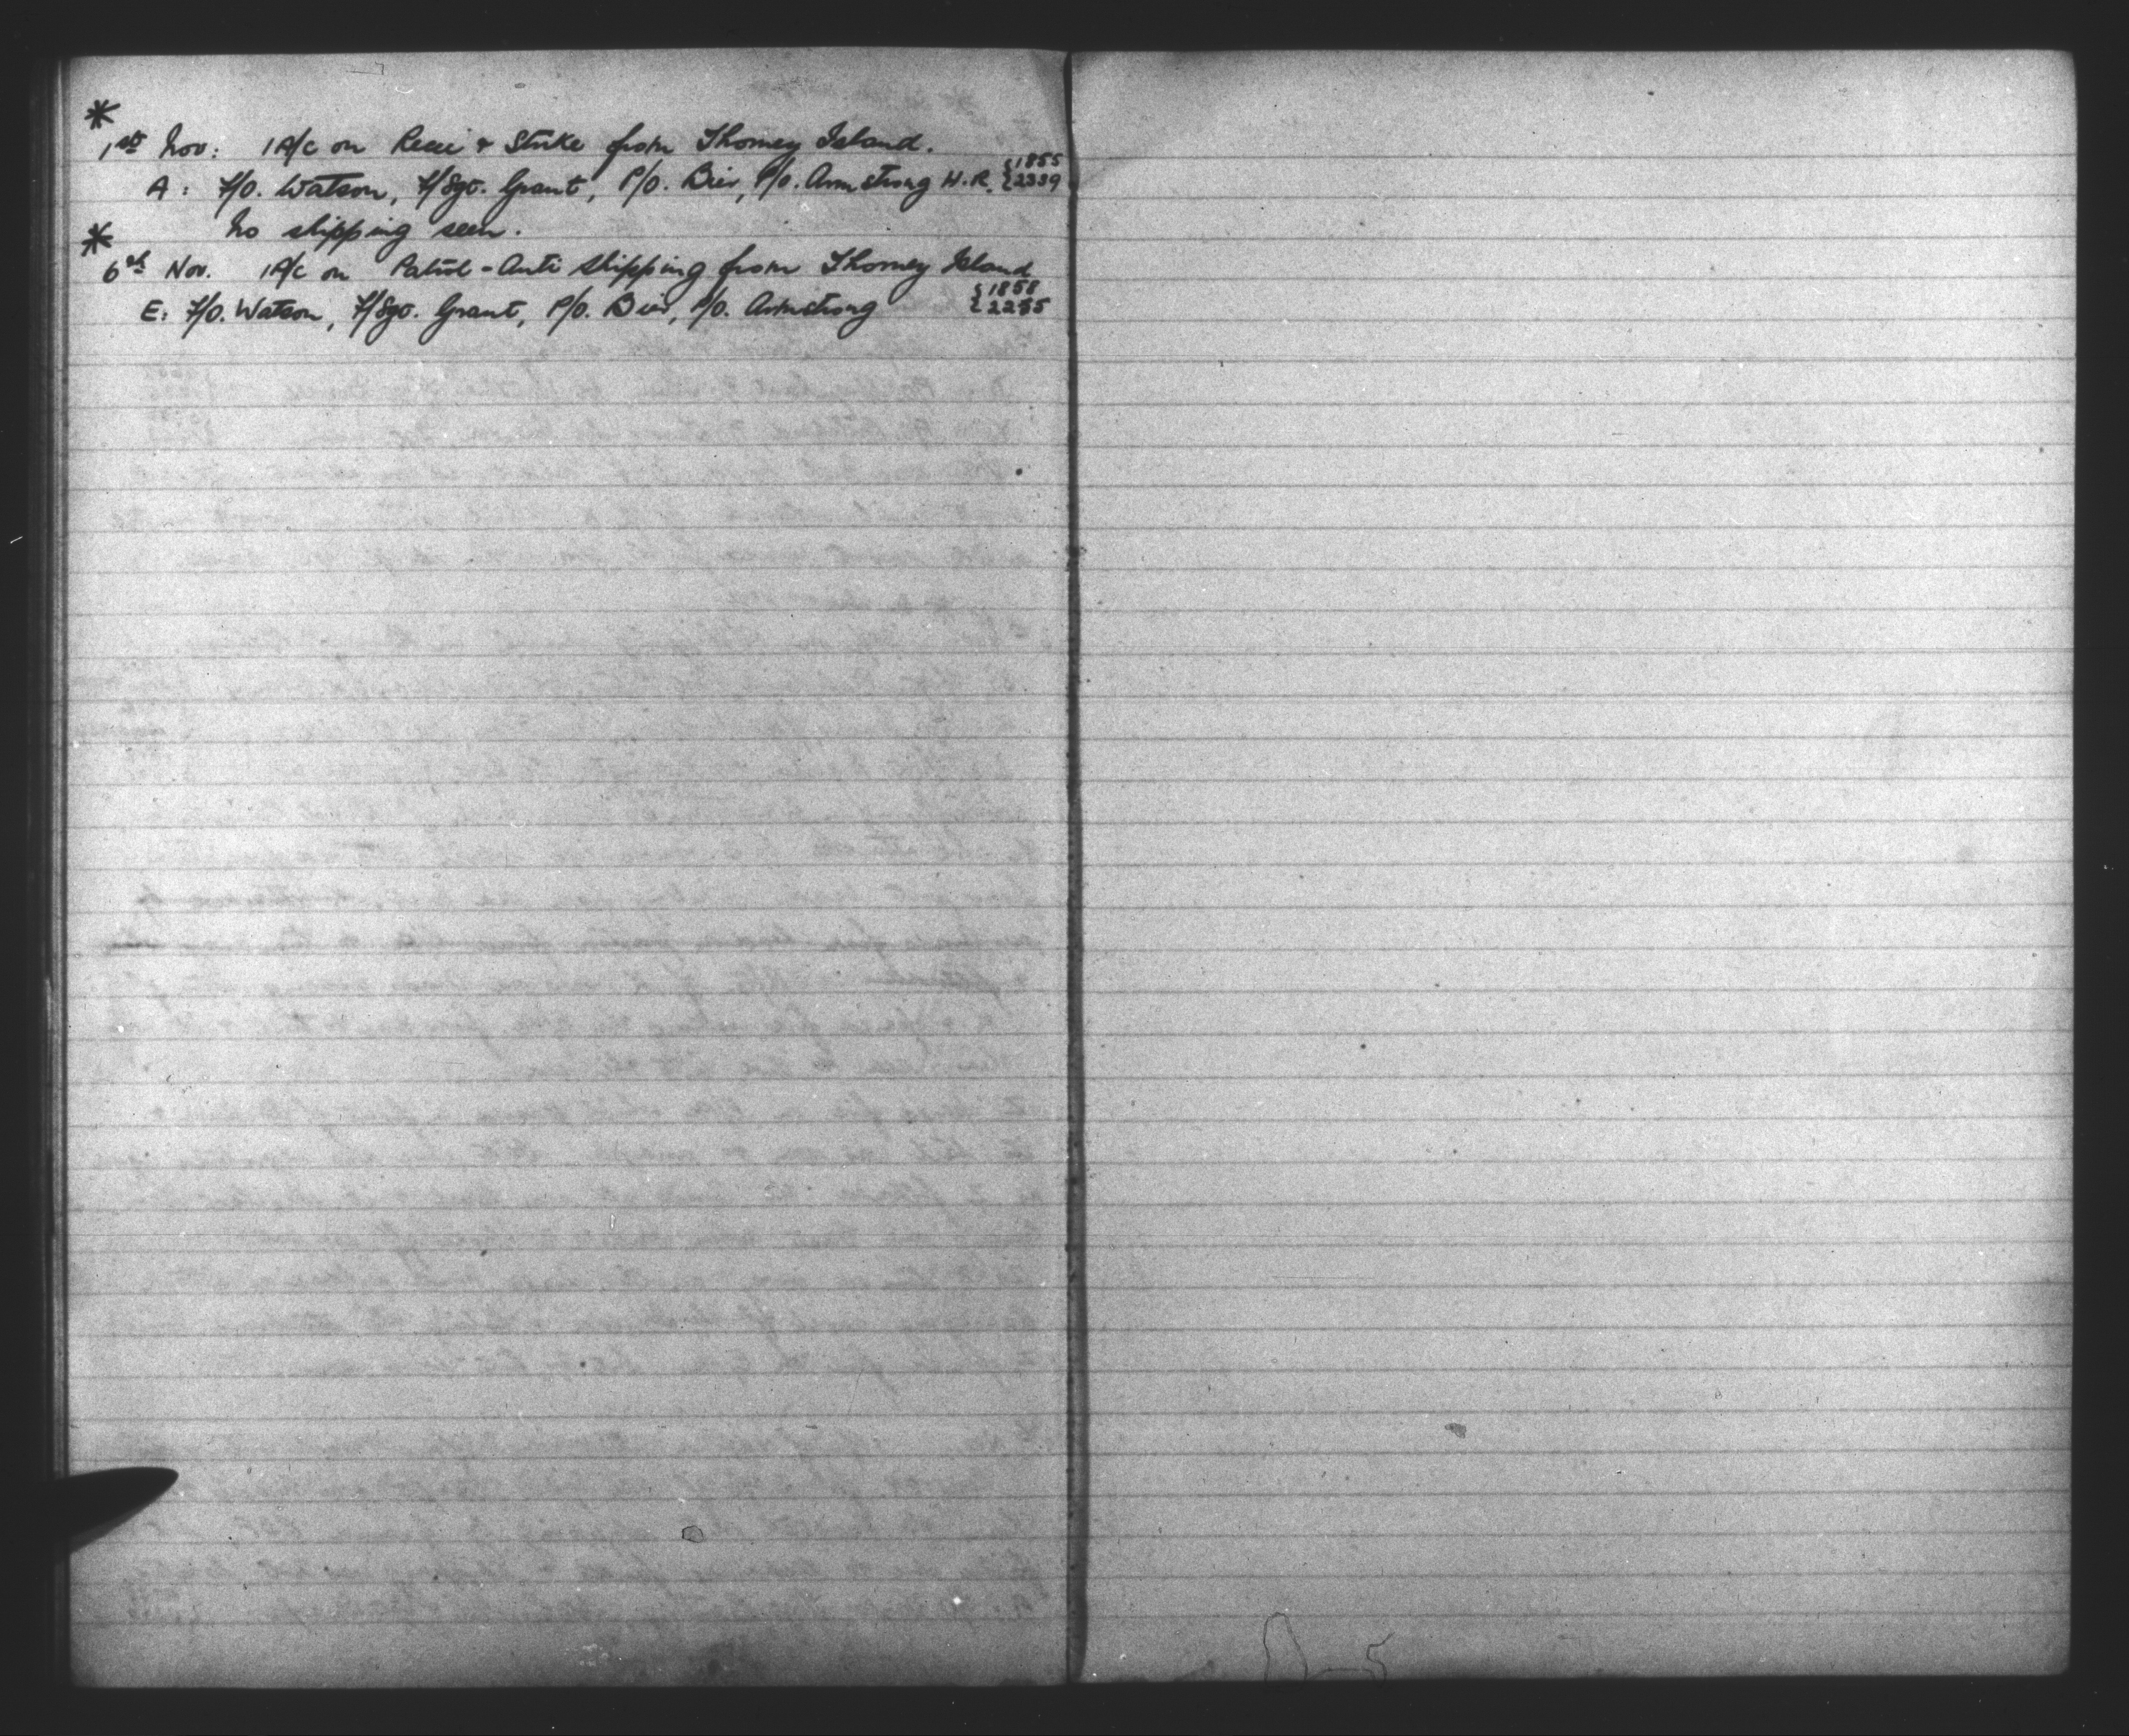 *
1st Nov: 1 A/c on Recce & Strike from Thorney Island.
A: F/O. Watson, F/Sgt. Grant, P/O. Bier, P/O. Armstrong H.R. {1855 {2339
No shipping seen.
*
6th Nov. 1 A/c on Patrol - Anti Shipping from Thorney Island
E: F/O. Watson, F/Sgt. Grant, P/O. Bier, P/O. Armstrong {1858